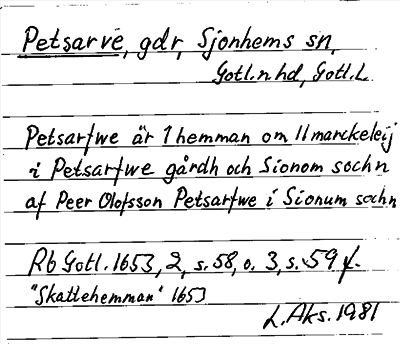 Petsarve, gdr, Sjonhems sn,
Gotl. n hd, Gotl. L
Petsarfwe är 1 hemman om 11 marckeleij
i Petsarfwe gårdh och Sionom sochn
af Peer Olofsson Petsarfwe i Sionum sochn
Rb Gotl. 1653, 2, s. 58, o. 3, s. 59 f.
"Skattehemman" 1653
L. Aks. 1981